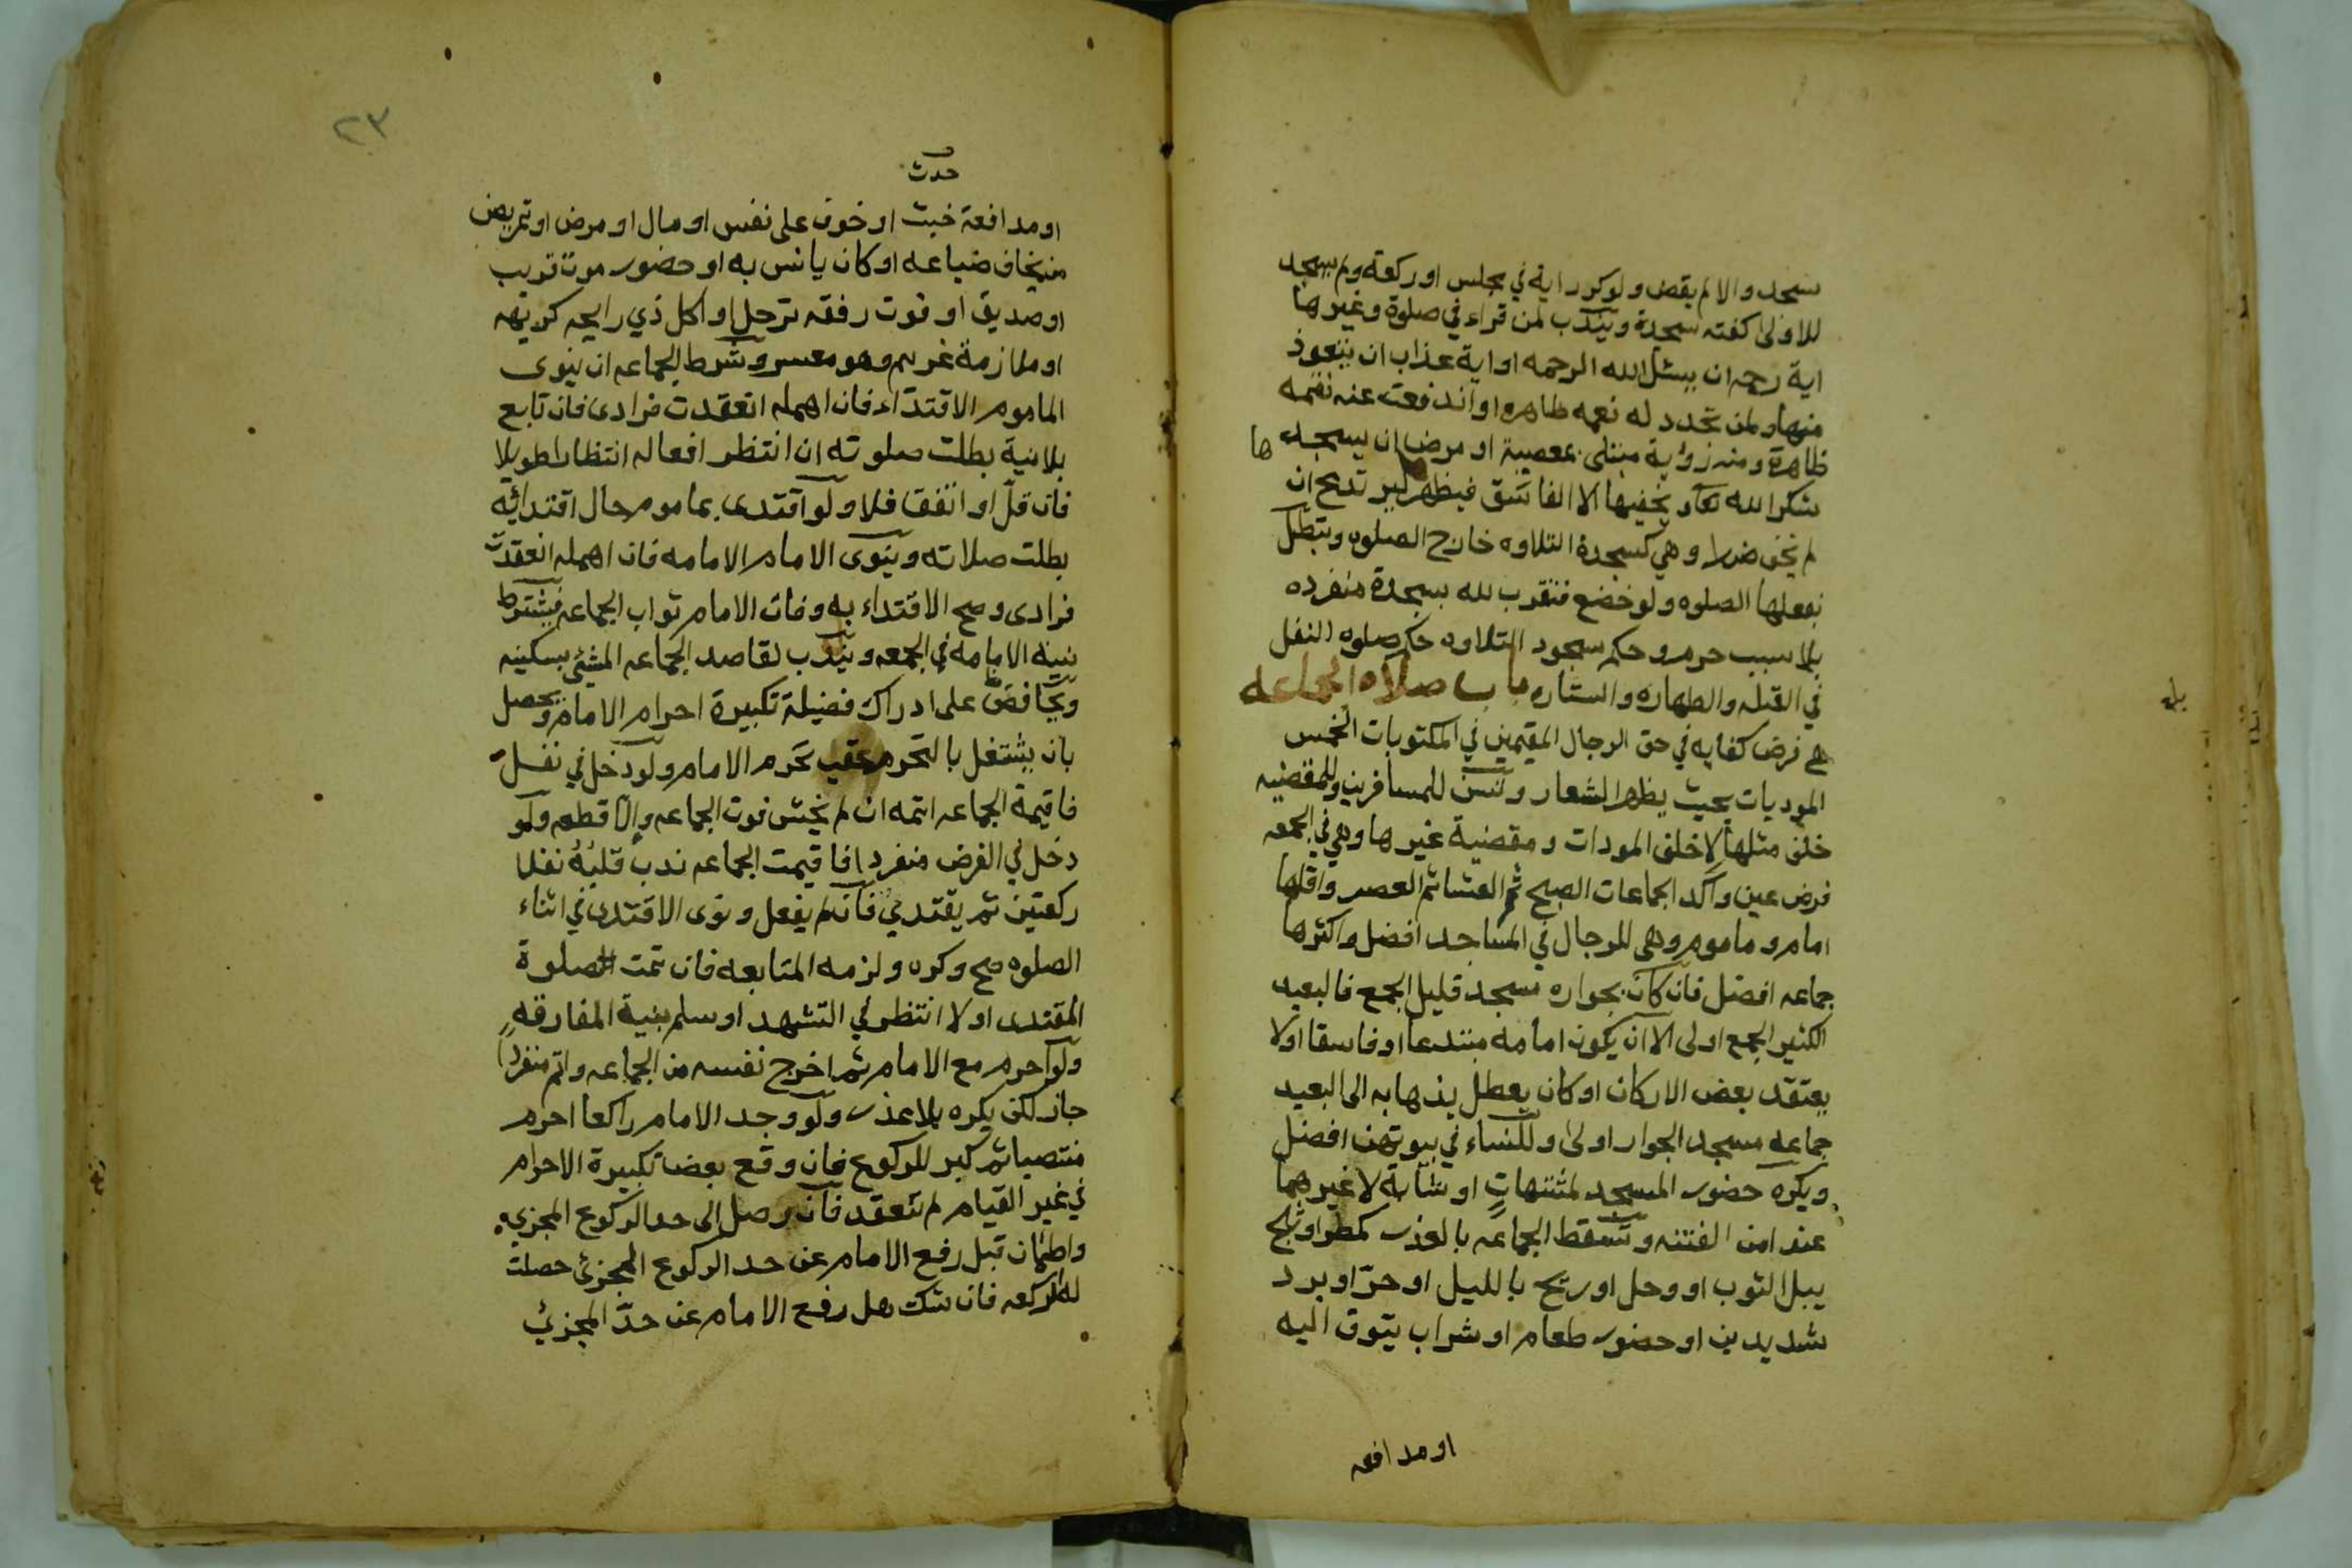 سجد والا لم يقض ولو كرر اية في مجلس او ركعة ولم يسجد
للاولى كفته سجدة ويندب لمن قراء في صلوة وغيرها
اية رحمه ان يسئل الله الرحمه او اية عذاب ان يتعوذ
منها ولمن تجدد له نعمه ظاهره او اندفعت عنه نقمه
ظاهرة ومنه رؤية مبتلى بمعصية او مرض ان يسجد ها
شكرا لله تعا ويخفيها الا الفاسق فيظهرها ليرتدع ان
لم يخف ضررا وهي كسجدة التلاوه خارج الصلوه وتبطل
بفعلها الصلوه ولو خضع فتقرب لله بسجدة منفرده
بلا سبب حرم وحكم سجود التلاوه حكم صلوه النفل
في القبله والطهاره والستاره باب صلاه الجماعه
هي فرض كفايه في حق الرجال المقيمين في المكتوبات الخمس
الموديات بحيث يظهر الشعار وتسن للمسافرين وللمقضيه
خلف مثلها لا خلف المودات ومقضية غيرها وهي في الجمعه
فرض عين واكد الجماعات الصبح ثم العشا ثم العصر واقلها
امام وماموم وهي للرجال في المساجد افضل واكثرها
جماعه افضل فان كان بجواره مسجد قليل الجمع فالبعيد
الكثير الجمع اولى الا ان يكون امامه مبتدعا او فاسقا او لا
يعتقد بعض الاركان او كان يعطل بذهابه الى البعيد
جماعه مسجد الجوار اولى وللنساء في بيوتهن افضل
ويكره حضور المسجد لمشتهاتٍ او شابة لا غيرهما
عند امن الفتنه وتسقط الجماعه بالعذر كمطر او ثلج
يبل الثوب او وحل او ريح بالليل او حرّ او برد
شديدين او حضور طعام او شراب يتوق اليه
او مدافعه
٢٣
حدث
او مدافعة خبث او خوف على نفس او مال او مرض او تمريض
من يخاف ضياعه او كان يانس به او حضور موت قريب
او صديق او فوت رفقه ترحل او اكل ذي رايحه كريهه
او ملازمة غريم وهو معسر وشرط الجماعه ان ينوى
الماموم الاقتداء فان اهمله انعقدت فرادى فان تابع
بلا نية بطلت صلوته ان انتظر افعاله انتظارا طويلا
فان قلّ او اتفقا فلا ولو اقتدى بماموم حال اقتدائه
بطلت صلاته وينوى الامام الامامه فان اهمله انعقدت
فرادى وصح الاقتداء به وفات الامام ثواب الجماعه فيشترط
نية الامامه في الجمعه ويندب لقاصد الجماعه المشي بسكينه
ويحافض على ادراك فضيلة تكبيرة احرام الامام وتحصل
بان يشتغل بالتحرم عقب تحرم الامام ولو دخل في نفل
فاقيمة الجماعه اتمه ان لم يخش فوت الجماعه والّا قطعه ولو
دخل في الفرض منفردا فاقيمت الجماعه ندب قلبُهُ نفلا
ركعتين ثم يقتدي فان لم يفعل ونوى الاقتدى في اثناء
الصلوه صح وكره ولزمه المتابعه فان تمت صلوة
المقتدى اولا انتظر في التشهد او سلم بنية المفارقه
ولو احرم مع الامام ثم اخرج نفسه من الجماعه واتم منفردا
جاز لكن يكره بلا عذر ولو وجد الامام راكعا احرم
منتصبا ثم كبر للركوع فان وقع بعض تكبيرة الاحرام
في غير القيام لم تنعقد فان وصل الى حد الركوع المجزي
واطمان قبل رفع الامام عن حد الركوع المجزئ حصلت
له الركعه فان شك هل رفع الامام عن حدّ المجزئ